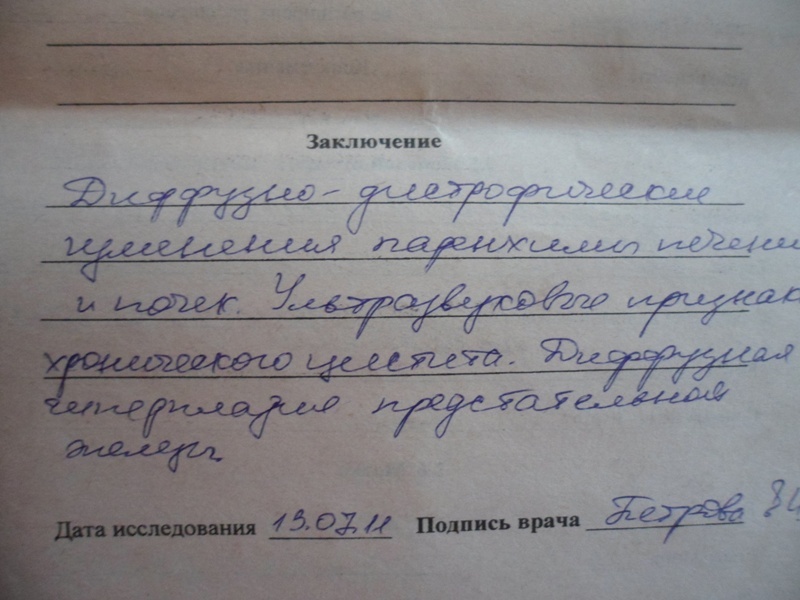 Заключение
Диффузно-дистрофические
изменения паренхимы печени
и почек. Ультразвуковые признак
хронического цистита. Диффузная
гиперплазия предстательной
железы.
Дата исследования 19.07.11 Подпись врача Петрова